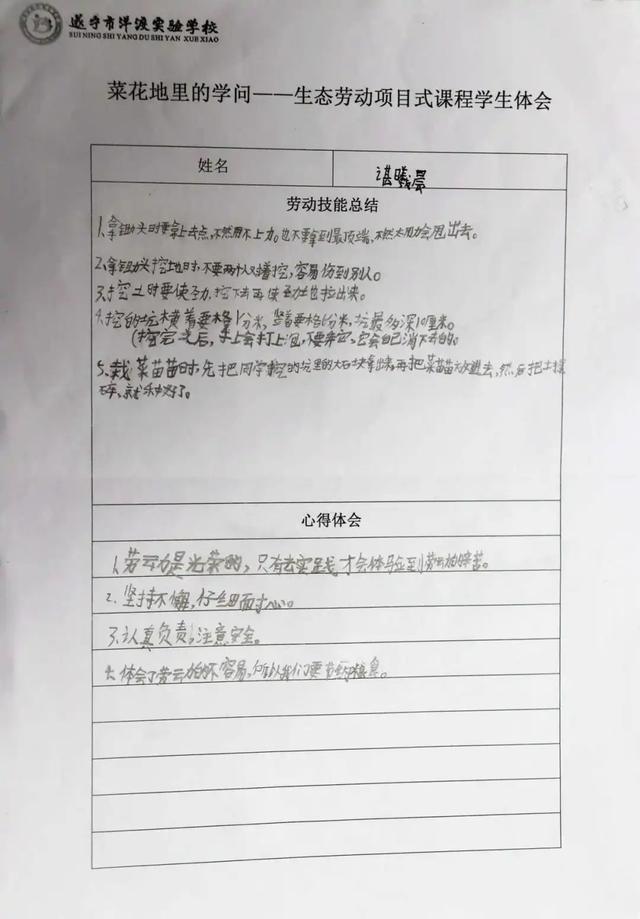 遂宁市洋渡实验学校
SUI NING SHI YANG DU SHI YAN XUE XIAO
菜花地里的学问——生态劳动项目式课程学生体会
姓名
谌曦晨
劳动技能总结
1.拿锄头时要拿上去点,不然用不上力。也不要拿到最顶端,不然太用力会甩出去。
2.拿锄头挖地时,不要两个人对着挖,容易伤到别人。
3.挖土时要使劲,挖下去再使劲土也拉出来。
4.挖的坑横着要格1分米,竖着要格6分米,坑最多深10厘米。
(挖完之后,手上会打上泡,不要弄它,它会自己消下去的。
5.栽菜苗苗时,先把同学挖的坑里的大石块拿出来,再把菜苗苗放进去,然后把土揉
碎,就种好了。
心得体会
1.劳动是光荣的,只有去实践,才会体验到劳动的辛苦。
2.坚持不懈,仔细耐心。
3.认真负责,注意安全。
4.体会了劳动的不容易,所以我们要节约粮食。